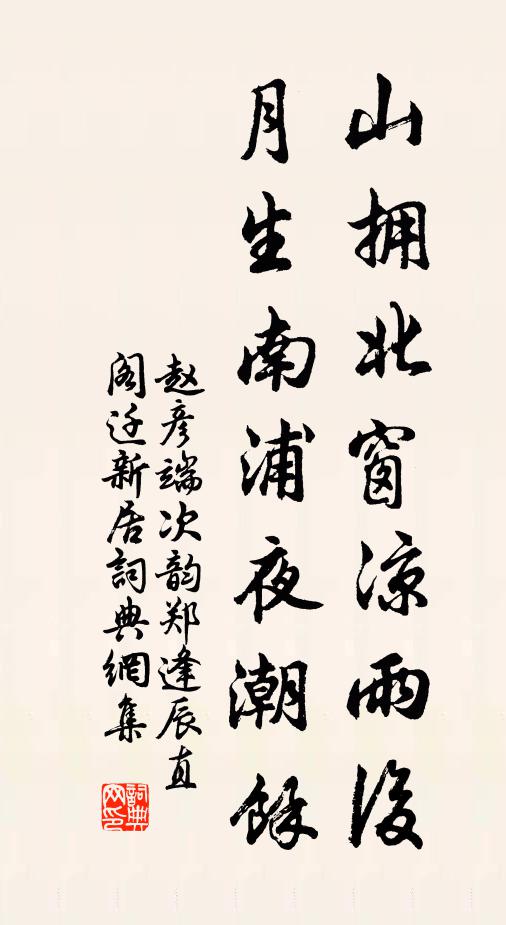 山拥北窗凉雨後
月生南浦夜潮餘
赵彦端次韵郑逢辰直
阁迁新居詞典網集
詞典
网印